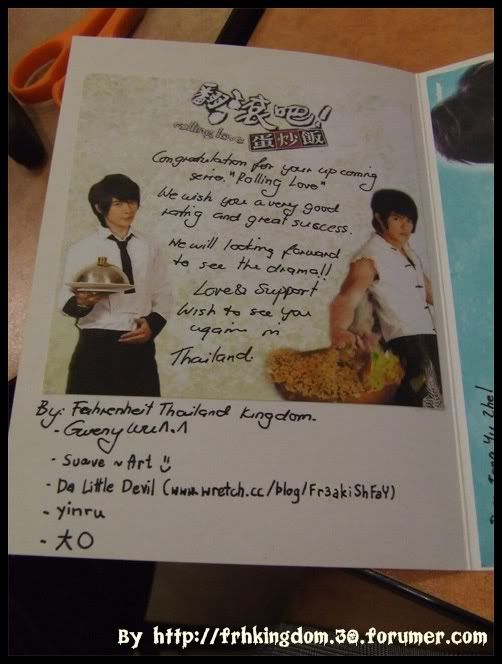 翻滾吧!
rolling love 蛋炒飯
Congratulation for your up coming
serie, "Rolling Love"
We wish you a very good
rating and great success.
We will looking forward
to see the drama!!
Love & Support
Wish to see you
again in
Thailand.
By: Fahrenheit Thailand Kingdom.
- Gweny wu ^.^
- Suave ~ Art
- Da Little Devil (www.wretch.cc/blog/Fr3akiShFaY)
- yinru
- 大O
By http://frhkingdom.30.forumer.com